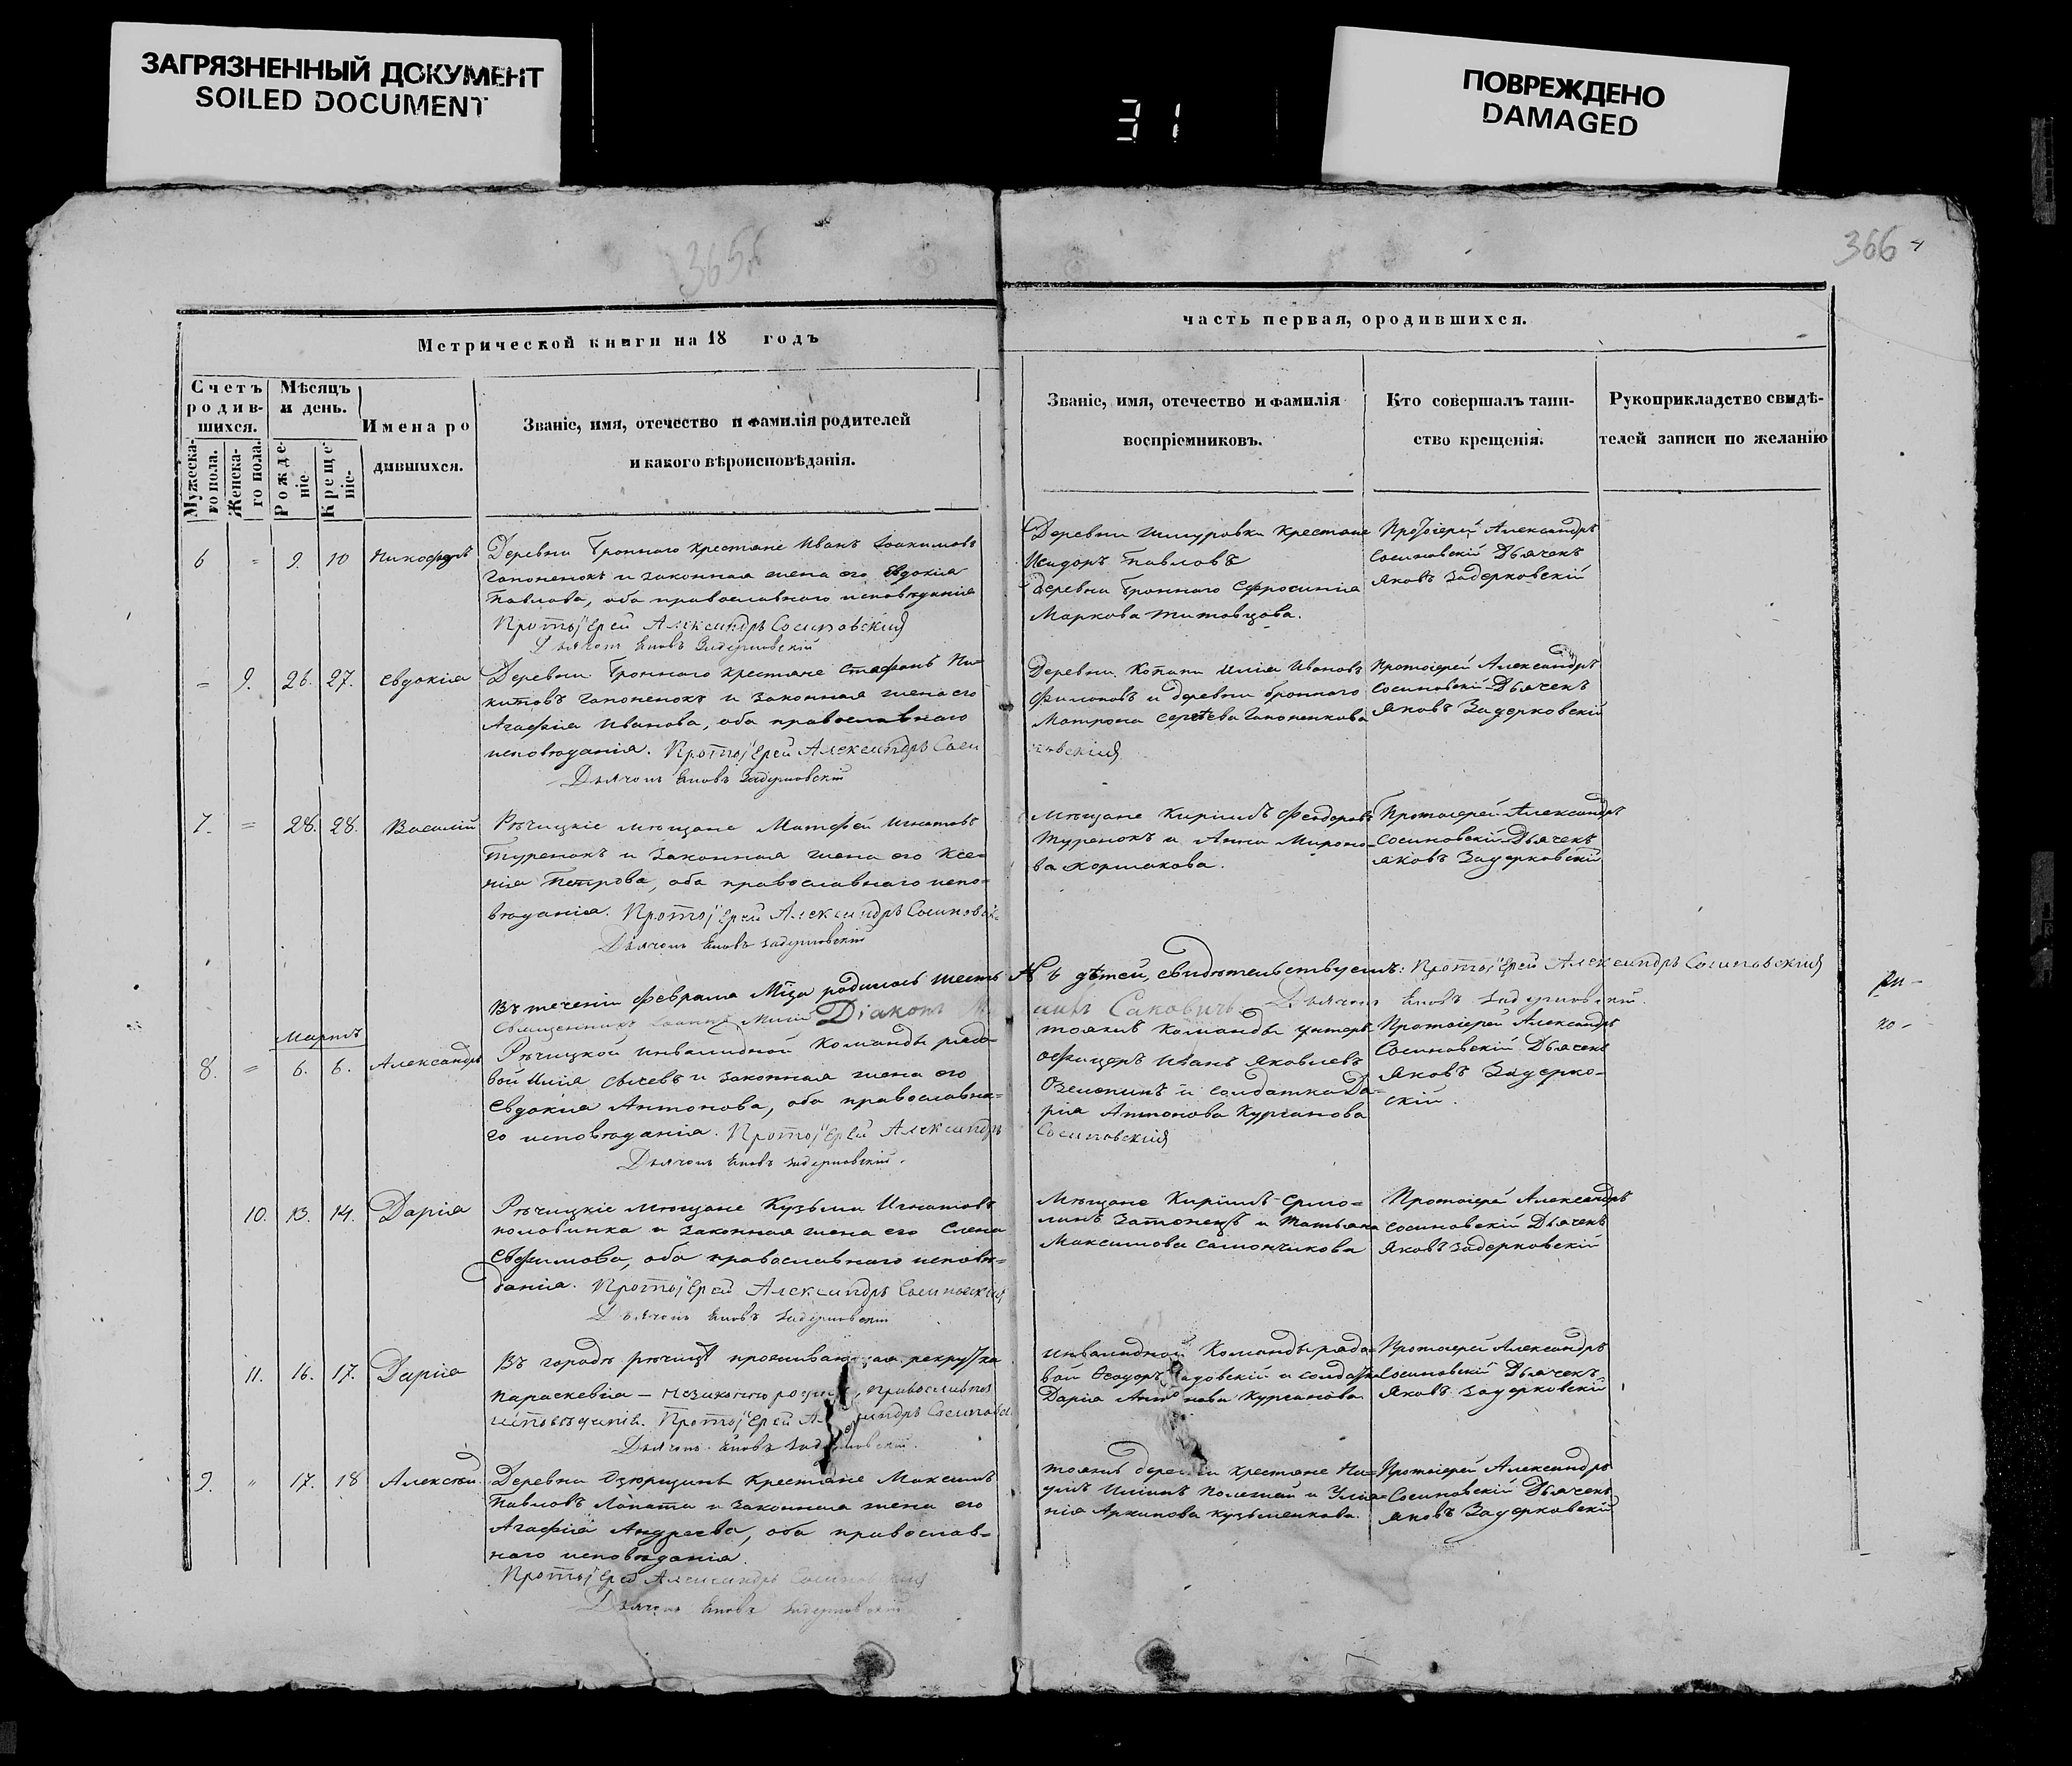 ЗАГРЯЗНЕННЫЙ ДОКУМЕНТ
SOILED DOCUMENT
31
ПОВРЕЖДЕНО
DAMAGED
365
366
Метрической книги на 18 годъ
часть первая, ородившихся.
Счетъ родив-шихся.
Мужеска-го пола.
Женска-го пола.
Мѣсяцъ и день.
Рожде-ніе
Креще-ніе.
Имена ро
дившихся.
Званіе, имя, отечество и фамилія родителей
и какого вѣроисповѣданія.
Званіе, имя, отечество и фамилія
воспріемниковъ.
Кто совершалъ таин-
ство крещенія.
Рукоприкладство свидѣ-
телей записи по желанію
6 = 9. 10 Никифоръ
Деревни Броннаго крестяне Иванъ Іоакимовъ
Гапоненокъ и законная жена его Евдокія
Павлова, оба православнаго исповѣданія
Протоіерей Александръ Сосиновскій
Дьячокъ Яковъ Задерковскій
Деревни крестяне
Исидоръ Павловъ
деревни Броннаго Ефросинія
Маркова Титовцова.
Протоіерей Александръ
Сосиновскій Дьячекъ
Яковъ Задерковскій
= 9. 26. 27. Евдокіа
Деревни Броннаго крестяне Стефанъ Ни=
китовъ Гапоненокъ и законная жена его
Агафіа Иванова, оба православнаго
исповѣданія. Протоіерей Александръ Соси
новскій
Дьячокъ Яковъ Задерковскій
Деревни Копани Иліа Ивановъ
Филоновъ и деревни Броннаго
Матрона Сергѣева Гапоненкова
Протоіерей Александръ
Сосиновскій Дьячекъ
Яковъ Задерковскій
7. = 28. 28. Василій
Рѣчицкіе мѣщане Матфей Игнатовъ
Туренокъ и законная жена его Ксе=
нія Петрова, оба православнаго испо=
вѣданія. Протоіерей Александръ Сосиновскі
Дьячокъ Яковъ Задерковскій
Мѣщане Кирилъ Феодоровъ
Туренокъ и Анна Мироно=
ва Коржакова.
Протоіерей Александръ
Сосиновскій Дьячекъ
Яковъ Задерковскій
Въ теченіи Февраля Мца родилось шесть дѣтей, свидѣтельствуемъ: Протоіерей Александръ Сосиновскій
Священникъ Іоаннъ Діаконъ Саковичъ. Дьячокъ Яковъ Задерковскій.
Мартъ
8. = 6. 6. Александръ
Рѣчицкой инвалидной команды рядо=
вой Иліа Сычевъ и законная жена его
Евдокіа Антонова, оба православна=
го исповѣданія. Протоіерей Александръ
Сосиновскій
Дьячокъ Яковъ Задерковскій.
тояжъ команды унтеръ
офицеръ Иванъ Яковлевъ
и солдатка Да=
рія Антонова Курганова
Протоіерей Александръ
Сосиновскій Дьячекъ
Яковъ Задерко=
скій.
10. 13. 14. Даріа
Рѣчицкіе мѣщане Кузьма Игнатовъ
половинка и законная жена его Елена
Евфимова, оба православнаго исповѣ=
данія. Протоіерей Александръ Сосиновскій
Дьячокъ Яковъ Задерковскій
Мѣщане Кирилъ Ермо=
линъ Затонецъ и Татьяна
Максимова Самончикова
Протоіерей Александръ
Сосиновскій Дьячекъ
Яковъ Задерковскій
11. 16. 17. Даріа
Въ городѣ рѣчицѣ проживающая рекрутка
Параскевіа —
исповѣданія. Протоіерей
Дьячокъ Яковъ
инвалидной Команды рядо=
вой Феодоръ и солдатка
Даріа Антонова Курганова
Протоіерей Александръ
Сосиновскій Дьячекъ
Яковъ Задерковскій
9. " 17. 18 Алексѣй
Деревни крестяне Максимъ
Павловъ Лопата и законная жена его
Агафіа Андреева, оба православ=
наго исповѣданія.
Протоіерей Александръ
Дьячокъ Яковъ Задерковскій
тояжъ деревни крестяне На=
умъ Илiинъ и Улiа=
нія Архипова Кузьменкова.
Протоіерей Александръ
Сосиновскій Дьячекъ
Яковъ Задерковскій